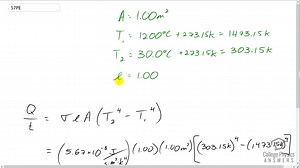 57PE
A = 1.00 m²
T₁ = 1200°C + 273.15K = 1473.15K
T₂ = 30.0°C + 273.15K = 303.15K
e = 1.00
Q/t = σ e A (T₂⁴ - T₁⁴)
= (5.67×10⁻⁸ J/s·m²·K⁴)(1.00)(1.00m²)[(303.15K)⁴ - (1473.15K)⁴
College Physics
ANSWERS